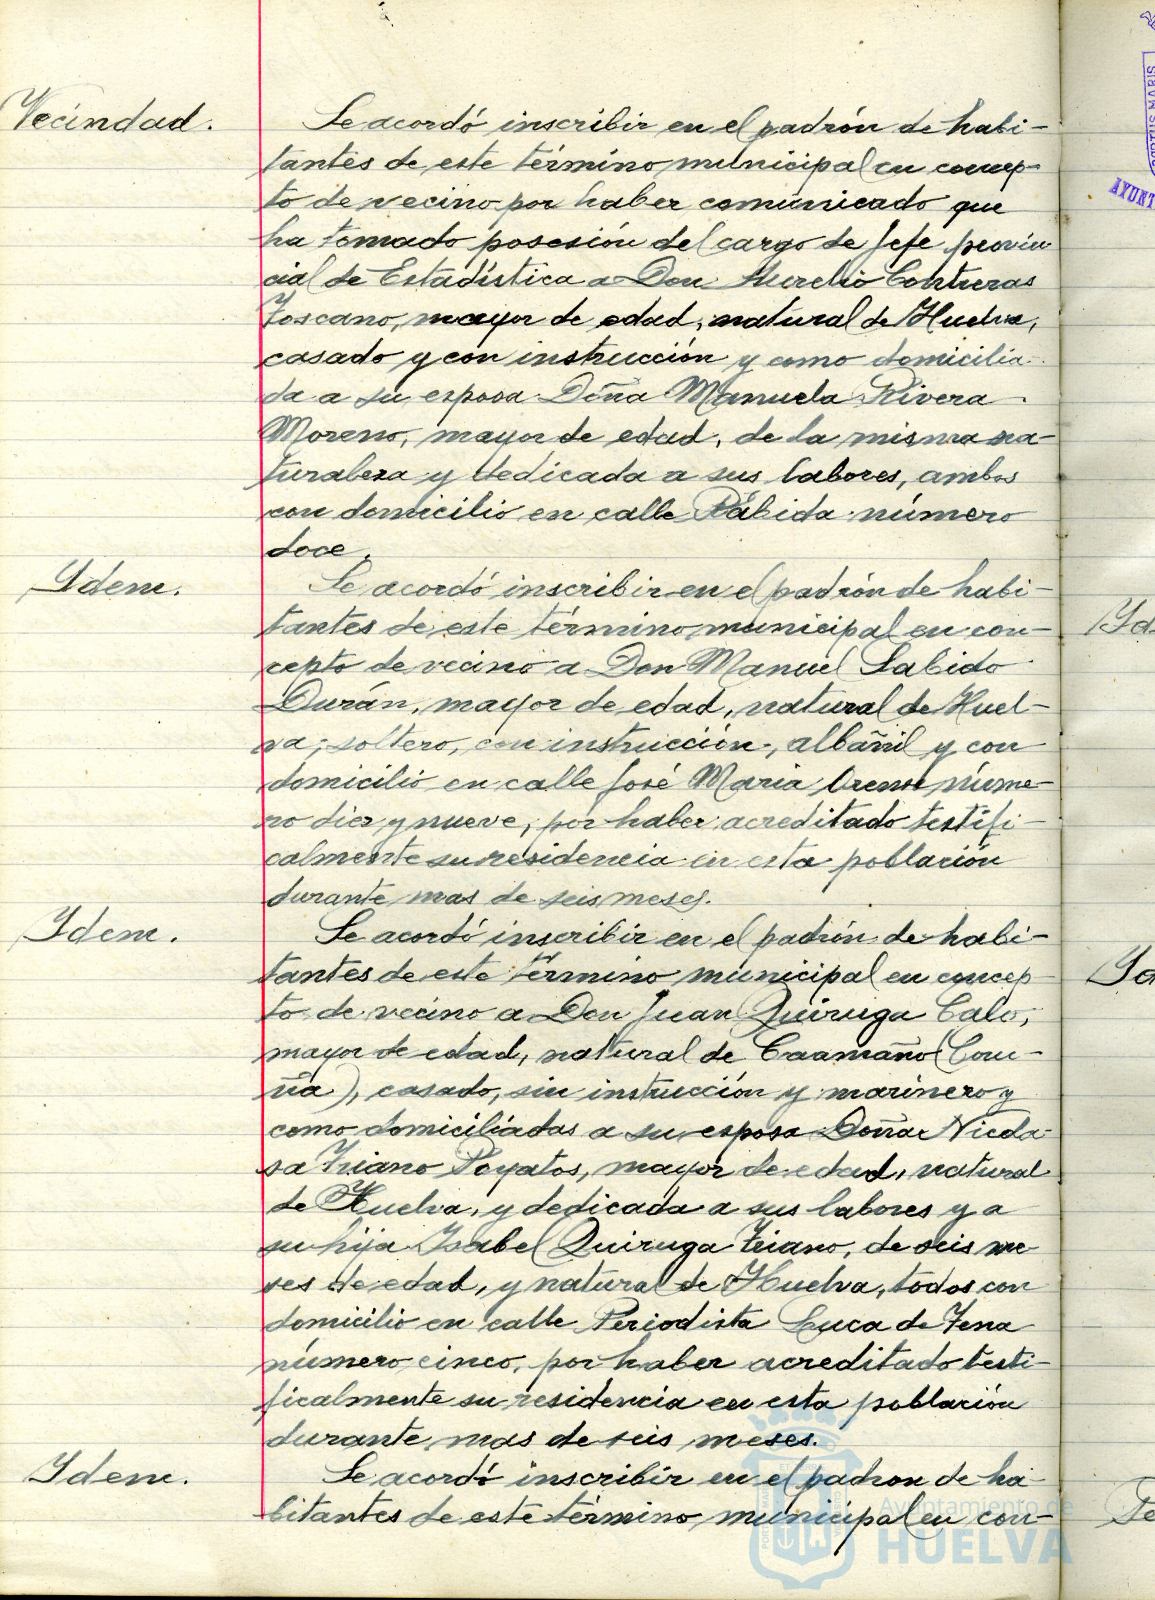 Vecindad.
Se acordó inscribir en el padrón de habi-
tantes de este término municipal en concep-
to de vecino por haber comunicado que
ha tomado posesión del cargo de Jefe provin
cial de Estadística a Don Aurelio Contreras
Toscano, mayor de edad, natural de Huelva,
casado y con instrucción y como domicilia-
da a su esposa Doña Manuela Rivera
Moreno, mayor de edad, de la misma na-
turaleza y dedicada a sus labores, ambos
con domicilio en calle Rábida número
doce.
Idem.
Se acordó inscribir en el padrón de habi-
tantes de este término municipal en con-
cepto de vecino a Don Manuel Salido
Durán, mayor de edad, natural de Huel-
va, soltero, con instrucción, albañil y con
domicilio en calle José María Orense núme-
ro diez y nueve, por haber acreditado testifi-
calmente su residencia en esta población
durante mas de seis meses.
Idem.
Se acordó inscribir en el padrón de habi-
tantes de este término municipal en concep
to de vecino a Don Juan Quiruga Calo,
mayor de edad, natural de Caamaño (Coru-
ña), casado, sin instrucción y marinero y
como domiciliadas a su esposa Doña Nicola-
sa Triano Poyatos, mayor de edad, natural
de Huelva, y dedicada a sus labores y a
su hija Isabel Quiruga Triano, de seis me
ses de edad, y natural de Huelva, todos con
domicilio en calle Periodista Luca de Tena
número cinco, por haber acreditado testi-
ficalmente su residencia en esta población
durante mas de seis meses.
Idem.
Se acordó inscribir en el padron de ha-
bitantes de este término municipal en con-
Ayuntamiento de
HUELVA